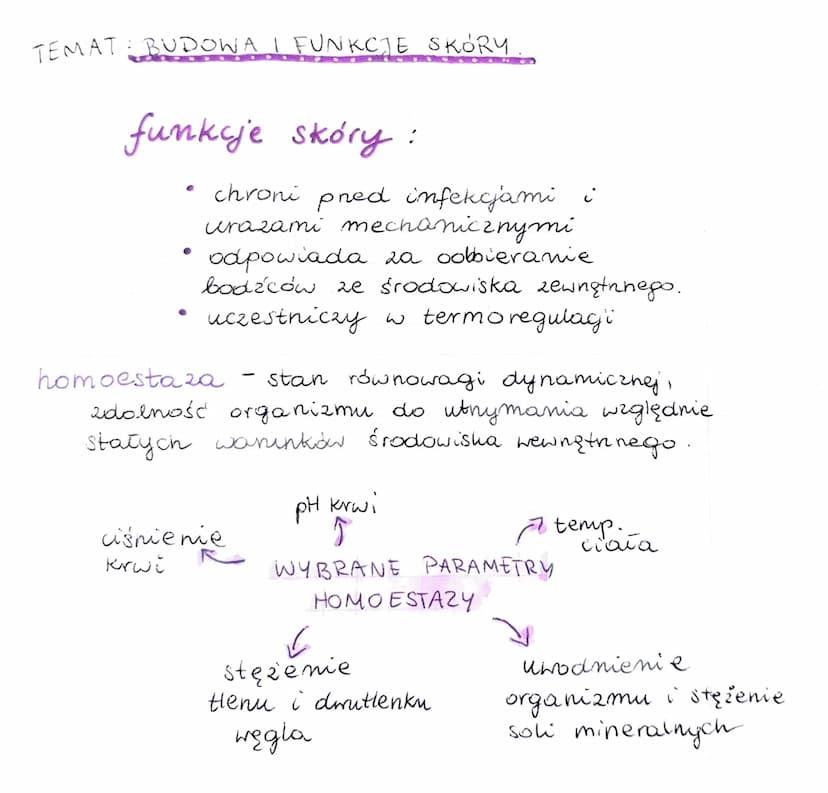 TEMAT: BUDOWA I FUNKCJE SKÓRY.
funkcje skóry:
• chroni przed infekcjami i
urazami mechanicznymi
• odpowiada za odbieranie
bodźców ze środowiska zewnętrznego.
• uczestniczy w termoregulacji
homoestaza – stan równowagi dynamicznej,
zdolność organizmu do utrzymania względnie
stałych warunków środowiska wewnętrznego.
pH krwi
ciśnienie
krwi
temp.
ciała
WYBRANE PARAMETRY
HOMOESTAZY
stężenie
tlenu i dwutlenku
węgla
uwodnienie
organizmu i stężenie
soli mineralnych